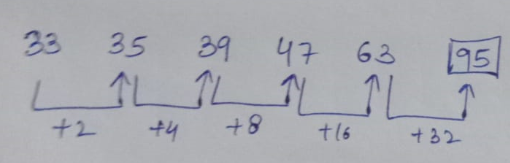 33 35 39 47 63 95
+2 +4 +8 +16 +32